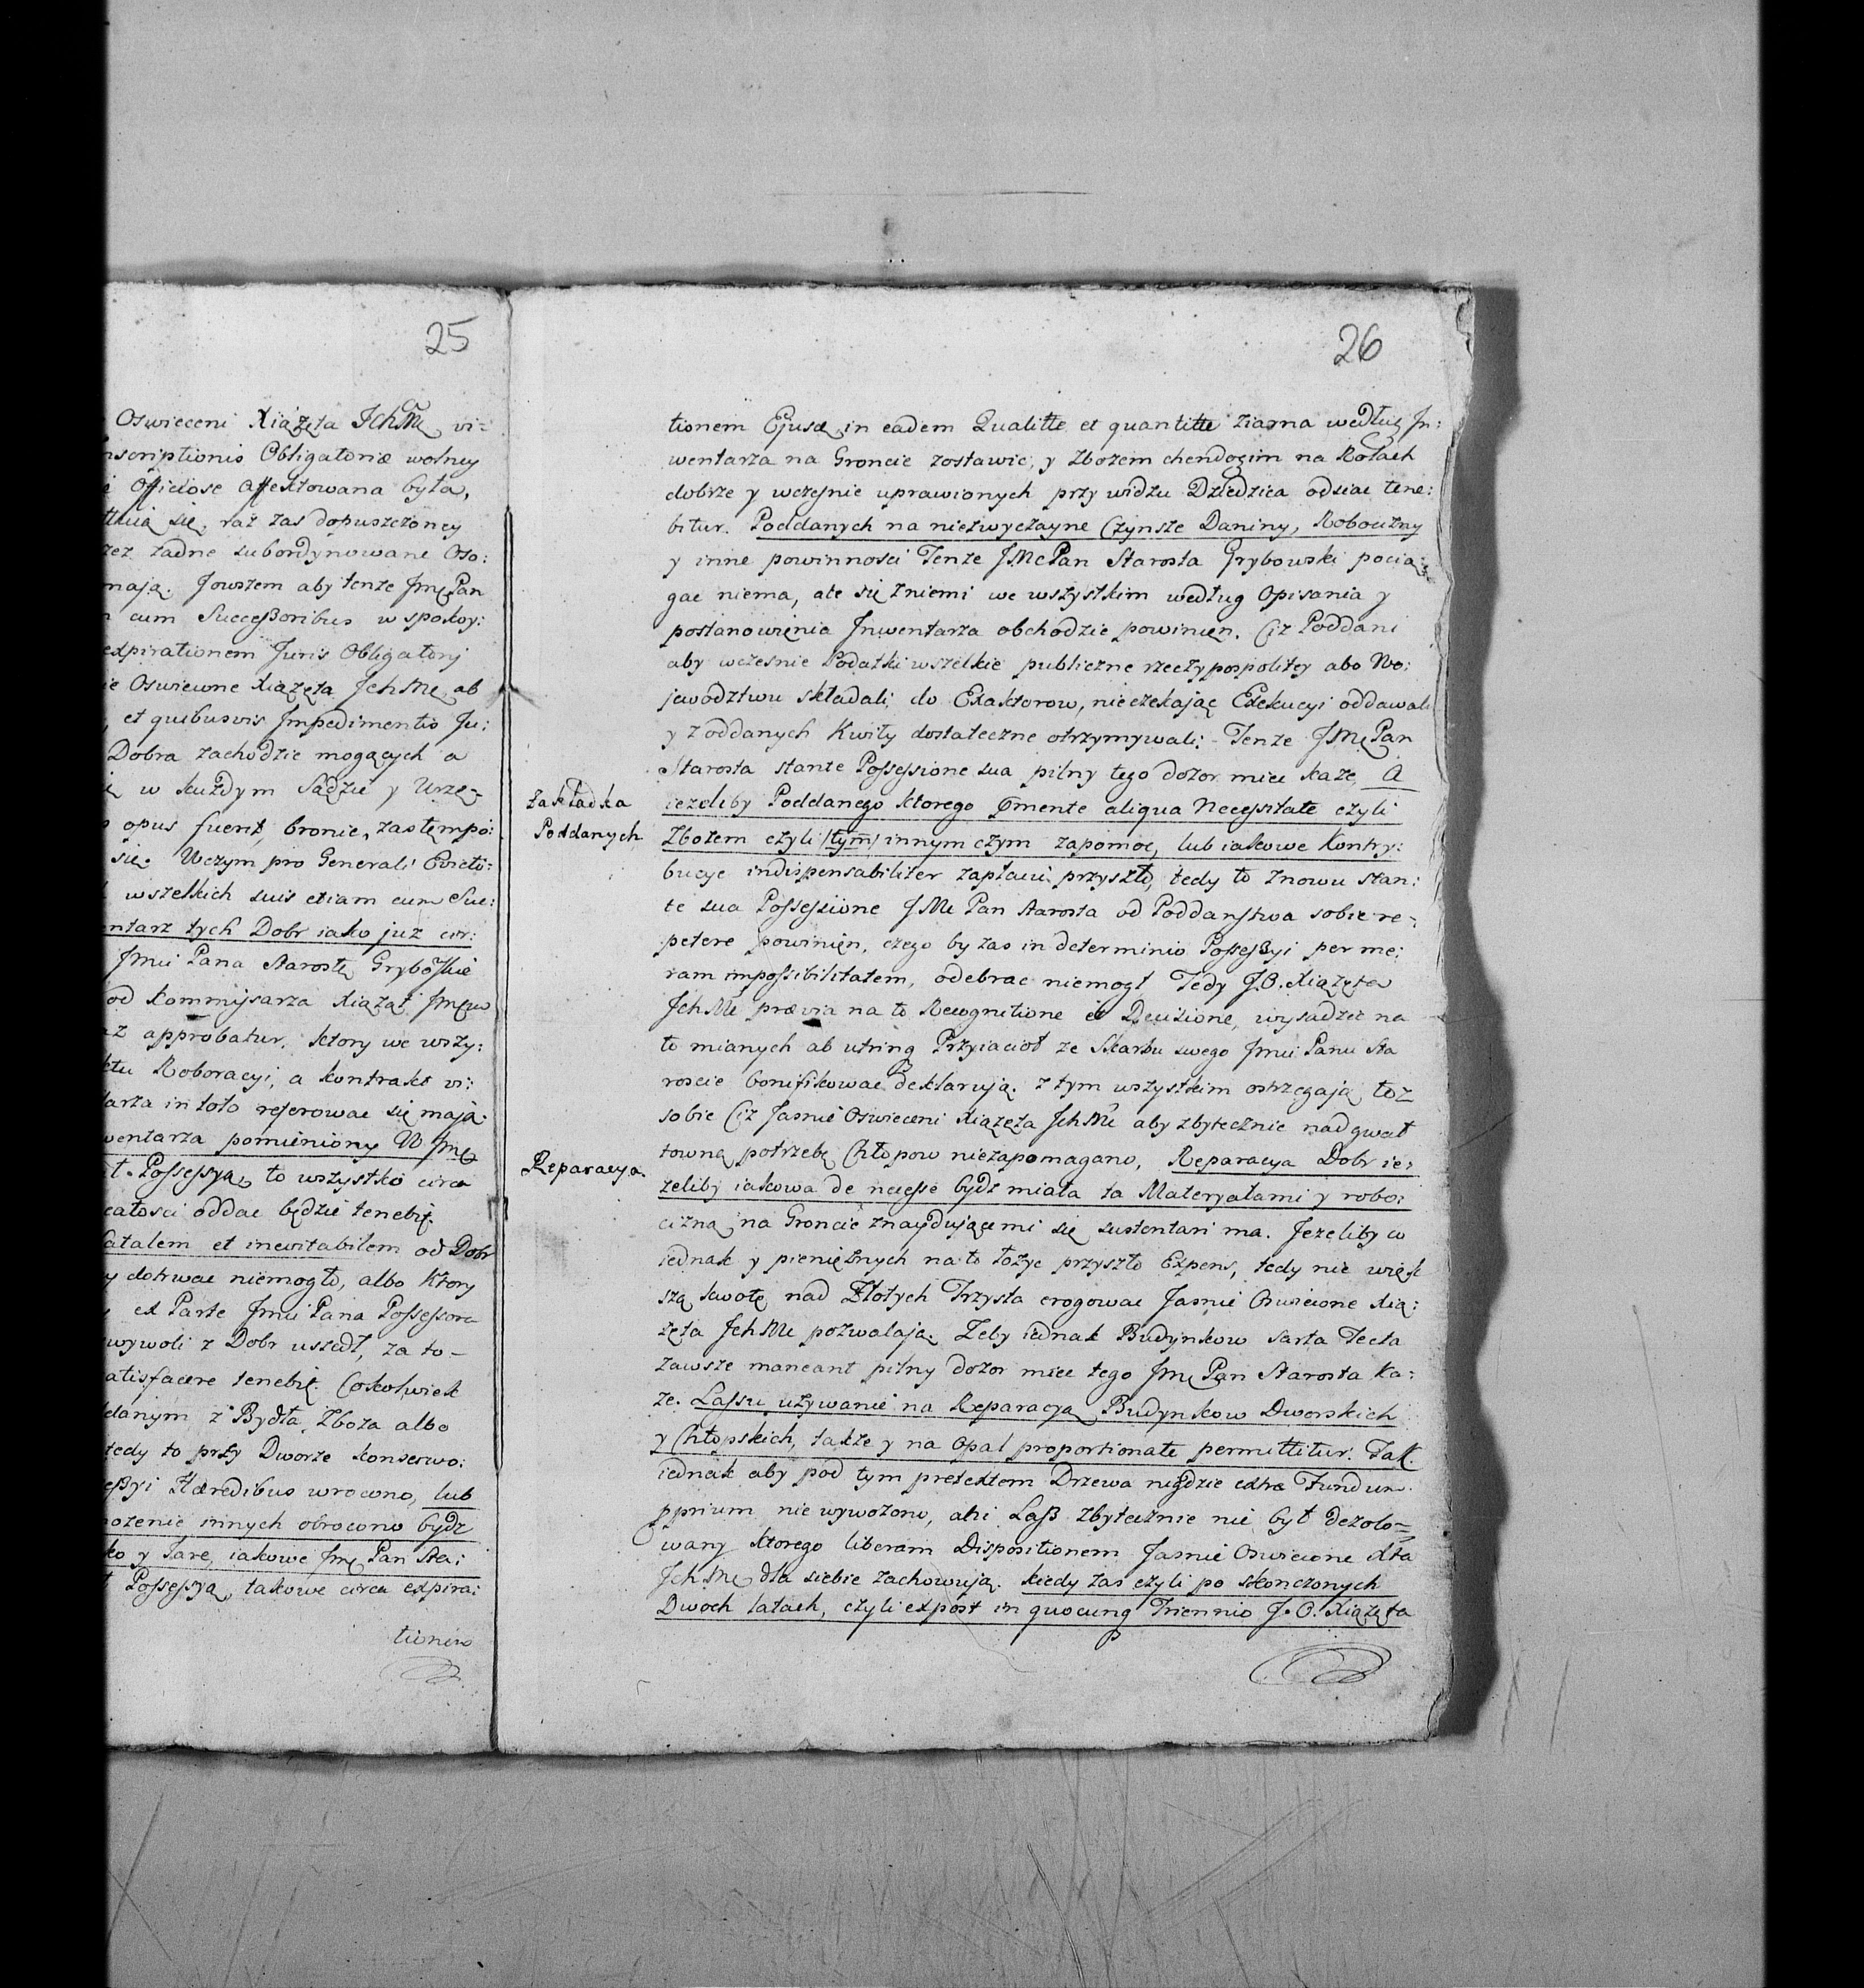 25
Oswieceni Xiązęta JchMę vi-
nscriptionis Obligatoriæ wolney
Officiose affektowana była,
się. raz zas dopuszczoney
zez zadne subordynowane Oso:
mają. Jowszem aby tenze JmęPan
cum Succeßoribus w spokoy:
expirationem Juris Obligatorij
Oswiecone Xiązęta JchMę ab
et quibusvis Impedimentis Ju:
Dobra zachodzic mogących a
w kazdym Sądzie y Urzę-
opus fuerit, bronic, zastempo:
się. Wczym pro Generali Evicti:
wszelkich suis etiam cum Suc:
ntarz tych Dobr iako juz cor:
Jmci Pana Starostę Grybowskie
od kommissarza Xiąząt Jmęw
az approbatur, ktory we wszy:
ktu Roboracyi, a kontrakt vi:
arza in toto referowac się mają.
wentarza pomieniony W Jmę
t. Possessyą, to wszystko circa
całosci oddac będzie tenebit.
fatalem et inevitabilem od Dobr
dotrwac niemogło, albo ktory
ex Parte Jmci Pana Possessora
wywoli z Dobr uszedł, za to-
atisfacere tenebit. Cokolwiek
danym z Bydła, Zboza albo
tedy to przy Dworze konserwo:
eßyi Hæredibus wrocono, lub
ozenie innych obrocono bydz
ko y Jare, iakowe Jmę Pan Sta:
Possessyą, takowe circa expira:
tionem
26
tionem Ejusd, in eadem Qualitte et quantitte ziarna według In:
wentarza na Groncie zostawic, y Zbozem chendogim na Rolach
dobrze y wczesnie uprawionych przy widzu Dziedzica odsiac tene:
bitur. Poddanych na niezwyczayne Czynsze Daniny, Robocizny
y inne powinnosci Tenze JMcPan Starosta Grybowski pocią:
gac niema, ale się zniemi we wszystkim według Opisania y
postanowienia Inwentarza obchodzic powinien. Ciz Poddani
aby wczesnie Podatki wszelkie publiczne rzeczypospolitey abo Wo:
jewodztwu składali, do Exaktorow, nieczekając Exekucyi oddawali
y z oddanych Kwity dostateczne otrzymywali. Tenze JMę Pan
Starosta stante Possessione sua pilny tego dozor miec kaze, A
Zakładka
Poddanych
iezeliby Poddanego ktorego pmente aliqua Necessitate czyli
Zbozem czyli /tym/ innym czym zapomoc, lub iakowe Kontry:
bucye indispensabiliter zapłacic przyszło, tedy to znowu stan:
te sua Possessione JMc Pan Starosta od Poddanstwa sobie re-
petere powinien, czego by zas in determinio Posseßyi per me:
ram impossibilitatem, odebrac niemogł Tedy J.O. Xiązęta
JchMc prævia na to Recognitione et Decisione, wysadzic na
to mianych ab utrinq Przyiacioł ze Skarbu swego Jmci Panu Sta
roscie bonifikowac deklarują. z tym wszystkim ostrzegają toz
sobie Ciz Jasnie Oswieceni Xiązęta JchMc aby zbytecznie nad gwał
towną potrzebę Chłopow niezapomagano, Reparacya Dobr ie:
Reparacya
zeliby iakowa de necesse bydz miała ta Materyałami y robo:
cizną na Groncie znaydującemi się sustentari ma. Jezeliby co
iednak y pieniężnych na to łozyc przyszło Expens, tedy nie więk
szą kwotę nad Złotych Trzysta erogowac Jasnie Oswiecone Xią:
zęta JchMc pozwalają. Zeby iednak Budynkow sarta Tecta
zawsze maneant pilny dozor miec tego Jmę Pan Starosta ka:
ze. Lassu uzywanie na Reparacyą Budynkow Dworskich
y Chłopskich, takze y na Opał proportionate permittitur. Tak
iednak aby pod tym pretextem Drzewa nigdzie extra Fundum
pprium nie wywozono, ani Laß zbytecznie nie był dezolo=
wany ktorego liberam Dispositionem Jasnie Oswiecone Xta
JchMę dla siebie zachowują. kiedy zas czyli po skonczonych
Dwoch latach, czyli expost in quocunq Triennio J.O. Xiązęta